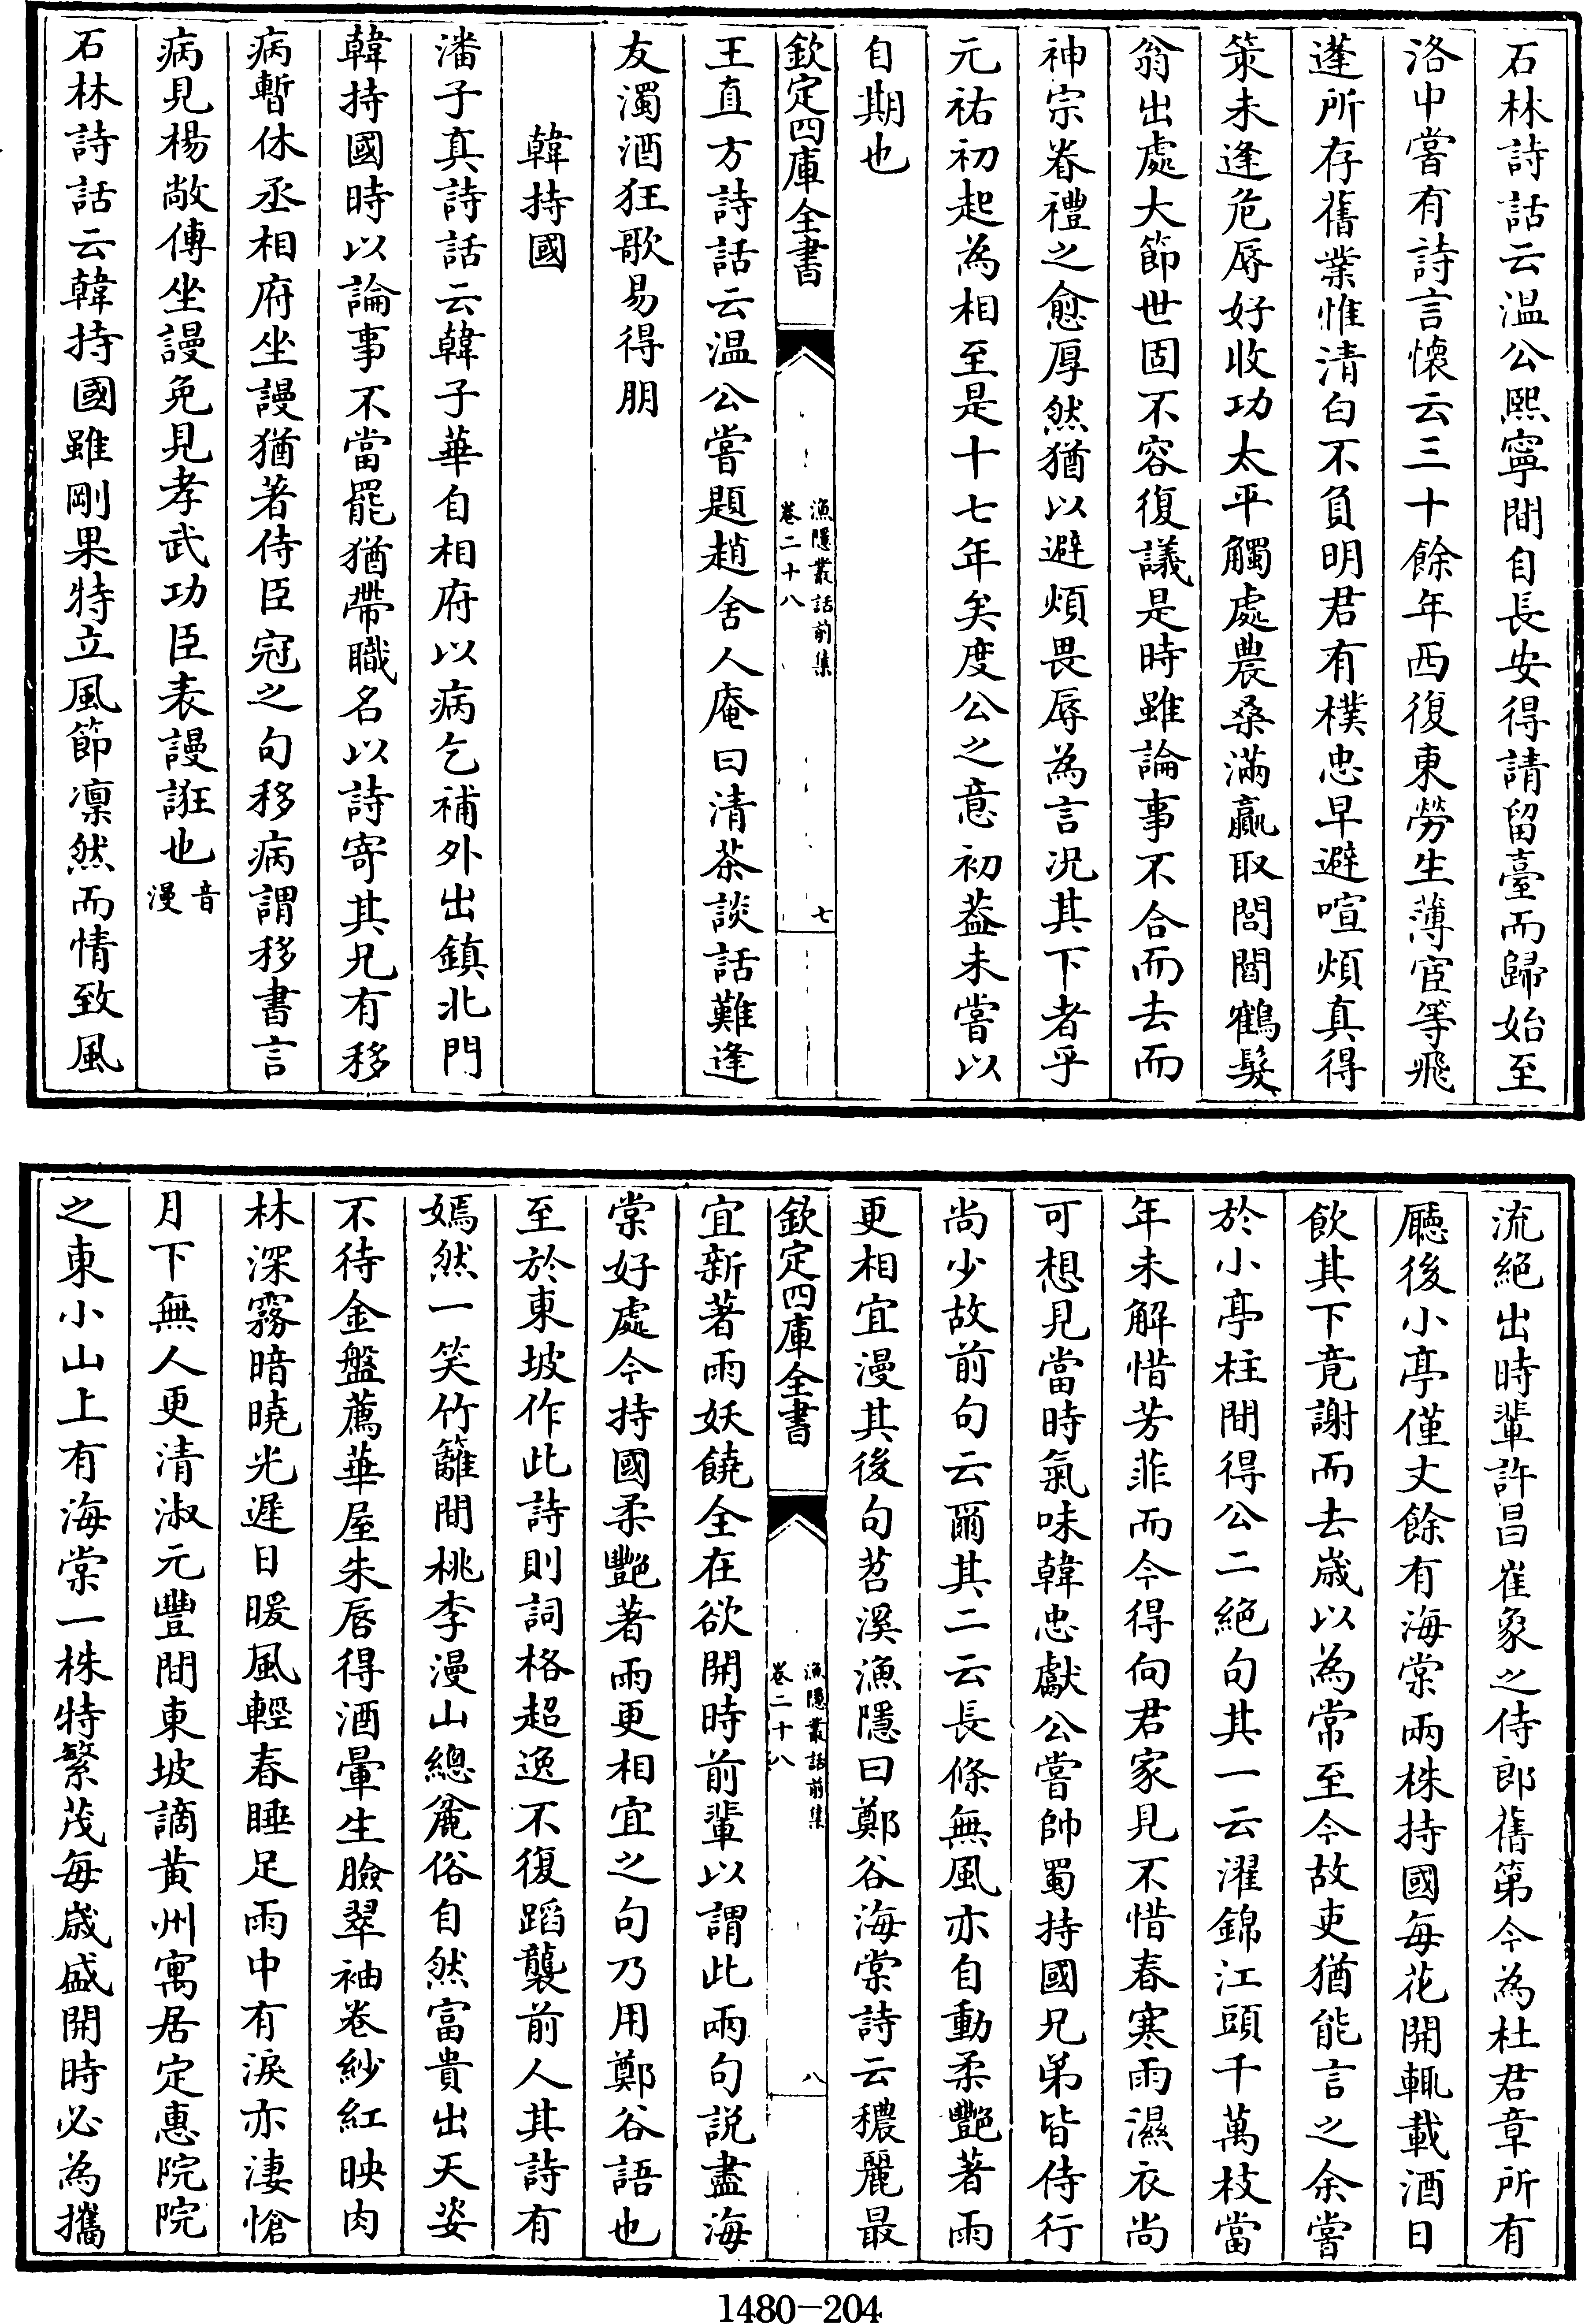 石林詩話云温公熙寧間自長安得請留臺而歸始至
洛中嘗有詩言懷云三十餘年西復東勞生薄宦等飛
蓬所存舊業惟清白不負明君有樸忠早避喧煩真得
策未逢危辱好收功太平觸處農桑滿贏取閭閻鶴髪
翁出處大節世固不容復議是時雖論事不合而去而
神宗眷禮之愈厚然猶以避煩畏辱為言况其下者乎
元祐初起為相至是十七年矣度公之意初葢未嘗以
自期也
欽定四庫全書
漁隱叢話前集
卷二十八
七
王直方詩話云温公嘗題趙舍人庵曰清茶談話難逢
友濁酒狂歌易得朋
韓持國
潘子真詩話云韓子華自相府以病乞補外出鎮北門
韓持國時以論事不當罷猶帶職名以詩寄其兄有移
病暫休丞相府坐謾猶著侍臣冠之句移病謂移書言
病見楊敞傳坐謾免見孝武功臣表謾誑也音漫
石林詩話云韓持國雖剛果特立風節凛然而情致風
流絶出時輩許昌崔象之侍郎舊第今為杜君章所有
廳後小亭僅丈餘有海棠兩株持國每花開輒載酒日
飲其下竟謝而去嵗以為常至今故吏猶能言之余嘗
於小亭柱間得公二絶句其一云濯錦江頭千萬枝當
年未解惜芳菲而今得向君家見不惜春寒雨濕衣尚
可想見當時氣味韓忠獻公嘗帥蜀持國兄弟皆侍行
尚少故前句云爾其二云長條無風亦自動柔艷著雨
更相宜漫其後句苕溪漁隱曰鄭谷海棠詩云穠麗最
欽定四庫全書
漁隱叢話前集
卷二十八
八
宜新著雨妖饒全在欲開時前輩以謂此兩句説盡海
棠好處今持國柔艷著雨更相宜之句乃用鄭谷語也
至於東坡作此詩則詞格超逸不復蹈襲前人其詩有
嫣然一笑竹籬間桃李漫山總麄俗自然富貴出天姿
不待金盤薦華屋朱唇得酒暈生臉翠袖卷紗紅映肉
林深霧暗曉光遲日暖風輕春睡足雨中有淚亦凄愴
月下無人更清淑元豐間東坡謫黄州寓居定惠院院
之東小山上有海棠一株特繁茂每嵗盛開時必為攜
1480-204